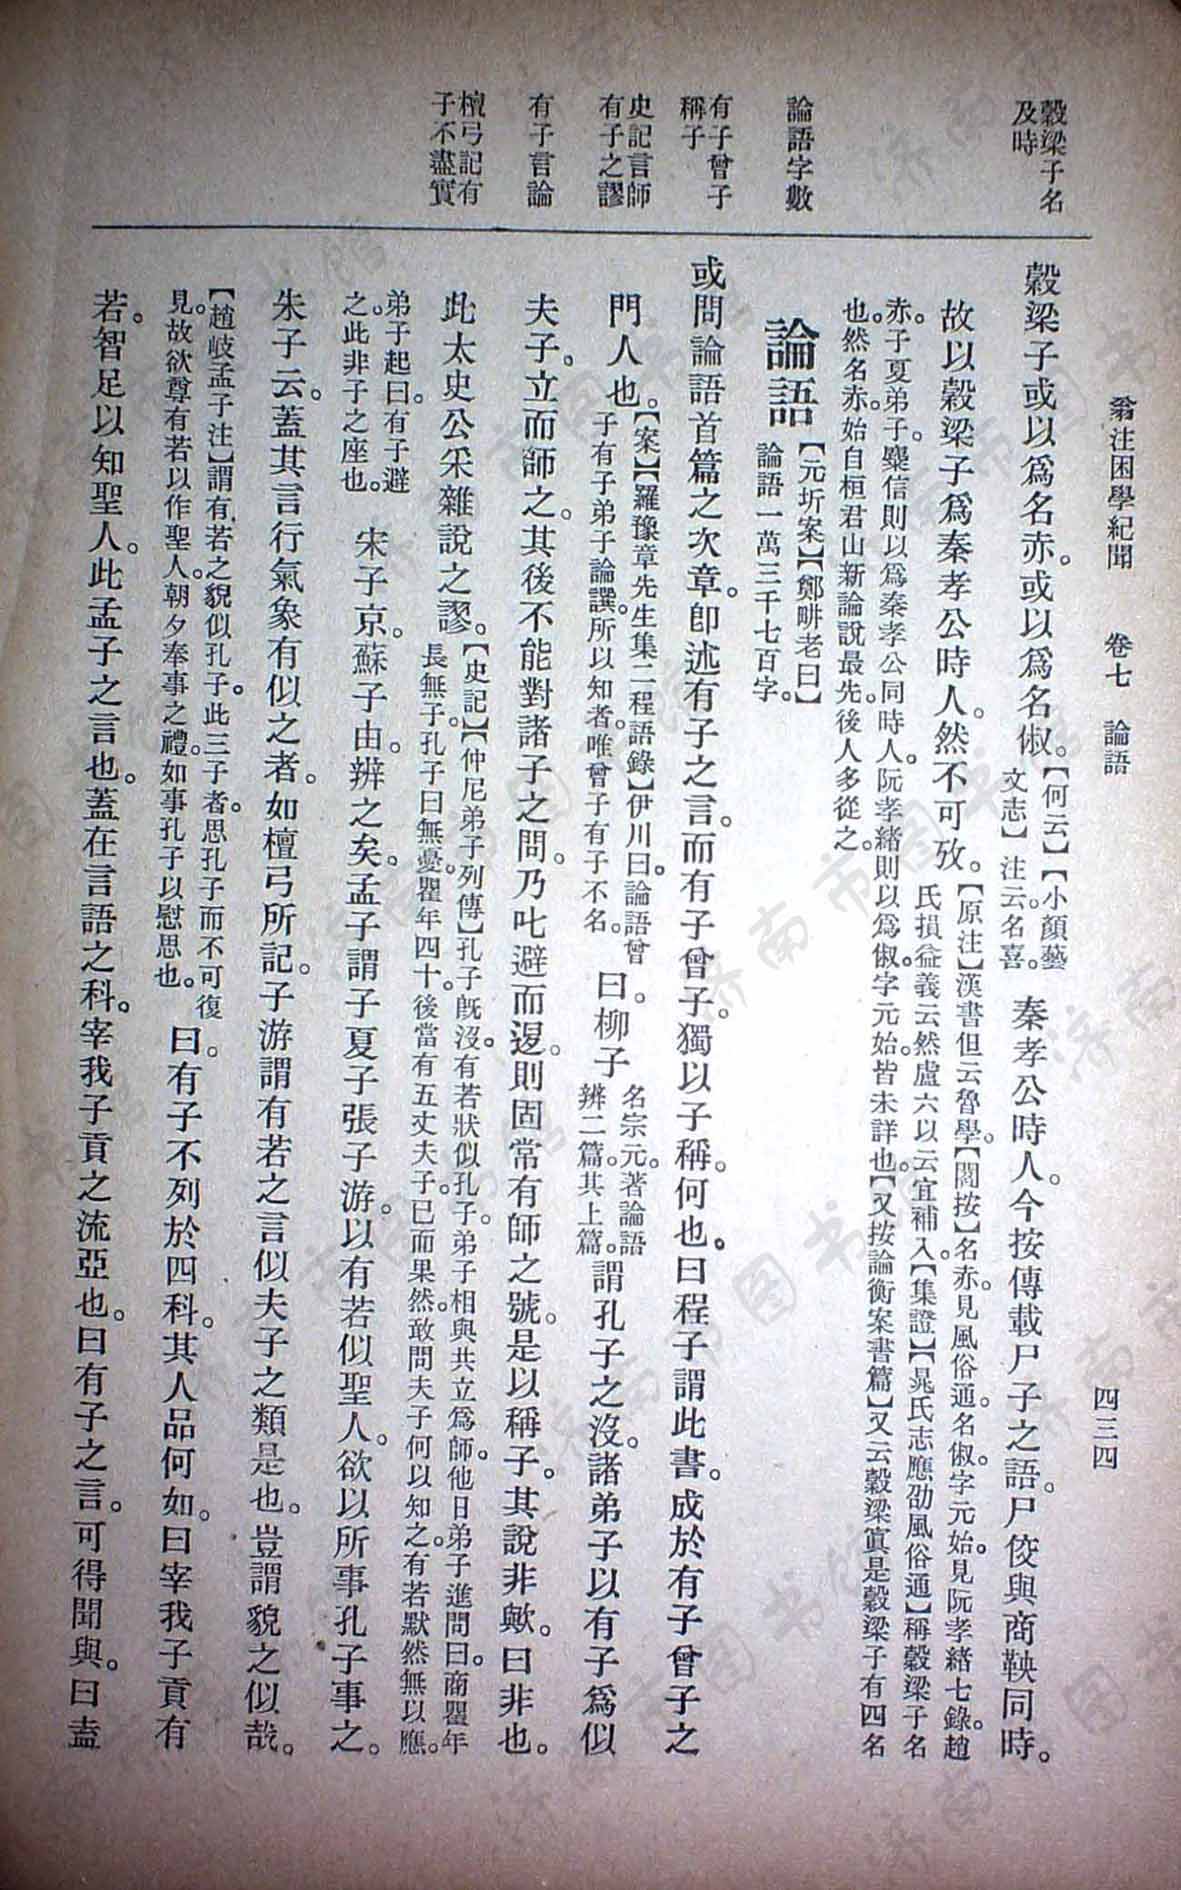 翁注困學紀聞　卷七　論語　四三四
穀梁子名
及時
論語字數
有子曾子
稱子
史記言師
有子之謬
有子言論
檀弓記有
子不盡實
穀梁子或以爲名赤。或以爲名俶。【何云】【小顏藝文志】注云。名喜。秦孝公時人。今按傳載尸子之語。尸佼與商鞅同時。
故以穀梁子爲秦孝公時人。然不可攷。【原注】漢書但云魯學。【閻按】名赤。見風俗通。名俶。字元始。見阮孝緒七錄。趙氏損益義云然盧六以云宜補入。【集證】【晁氏志應劭風俗通】稱穀梁子名
赤。子夏弟子。麋信則以爲秦孝公同時人。阮孝緒則以爲俶。字元始。皆未詳也。【又按論衡案書篇】又云穀梁寘是穀梁子有四名
也。然名赤。始自桓君山新論說最先。後人多從之。
論語【元圻案】【鄭畊老曰】論語一萬三千七百字。
或問論語首篇之次章。卽述有子之言。而有子曾子。獨以子稱。何也。曰程子謂此書。成於有子曾子之
門人也。【案】【羅豫章先生集二程語錄】伊川曰。論語曾子有子弟子論譔。所以知者。唯曾子有子不名。曰。柳子名宗元。著論語辨二篇。其上篇。謂孔子之沒。諸弟子以有子爲似
夫子。立而師之。其後不能對諸子之問。乃叱避而退。則固常有師之號。是以稱子。其說非歟。曰非也。
此太史公采雜說之謬。【史記】【仲尼弟子列傳】孔子旣沒。有若狀似孔子。弟子相與共立爲師。他日弟子進問曰。商瞿年長無子。孔子曰無憂。瞿年四十。後當有五丈夫子。已而果然。敢問夫子何以知之。有若默然無以應。
弟子起曰。有子避之。此非子之座也。宋子京。蘇子由。辨之矣。孟子謂子夏子張子游。以有若似聖人。欲以所事孔子事之。
朱子云。蓋其言行氣象有似之者。如檀弓所記。子游謂有若之言似夫子之類是也。豈謂貌之似哉。
【趙岐孟子注】謂有若之貌似孔子。此三子者。思孔子而不可復見。故欲尊有若以作聖人。朝夕奉事之禮。如事孔子以慰思也。曰。有子不列於四科。其人品何如。曰宰我子貢有
若。智足以知聖人。此孟子之言也。蓋在言語之科。宰我子貢之流亞也。曰有子之言。可得聞與。曰盍